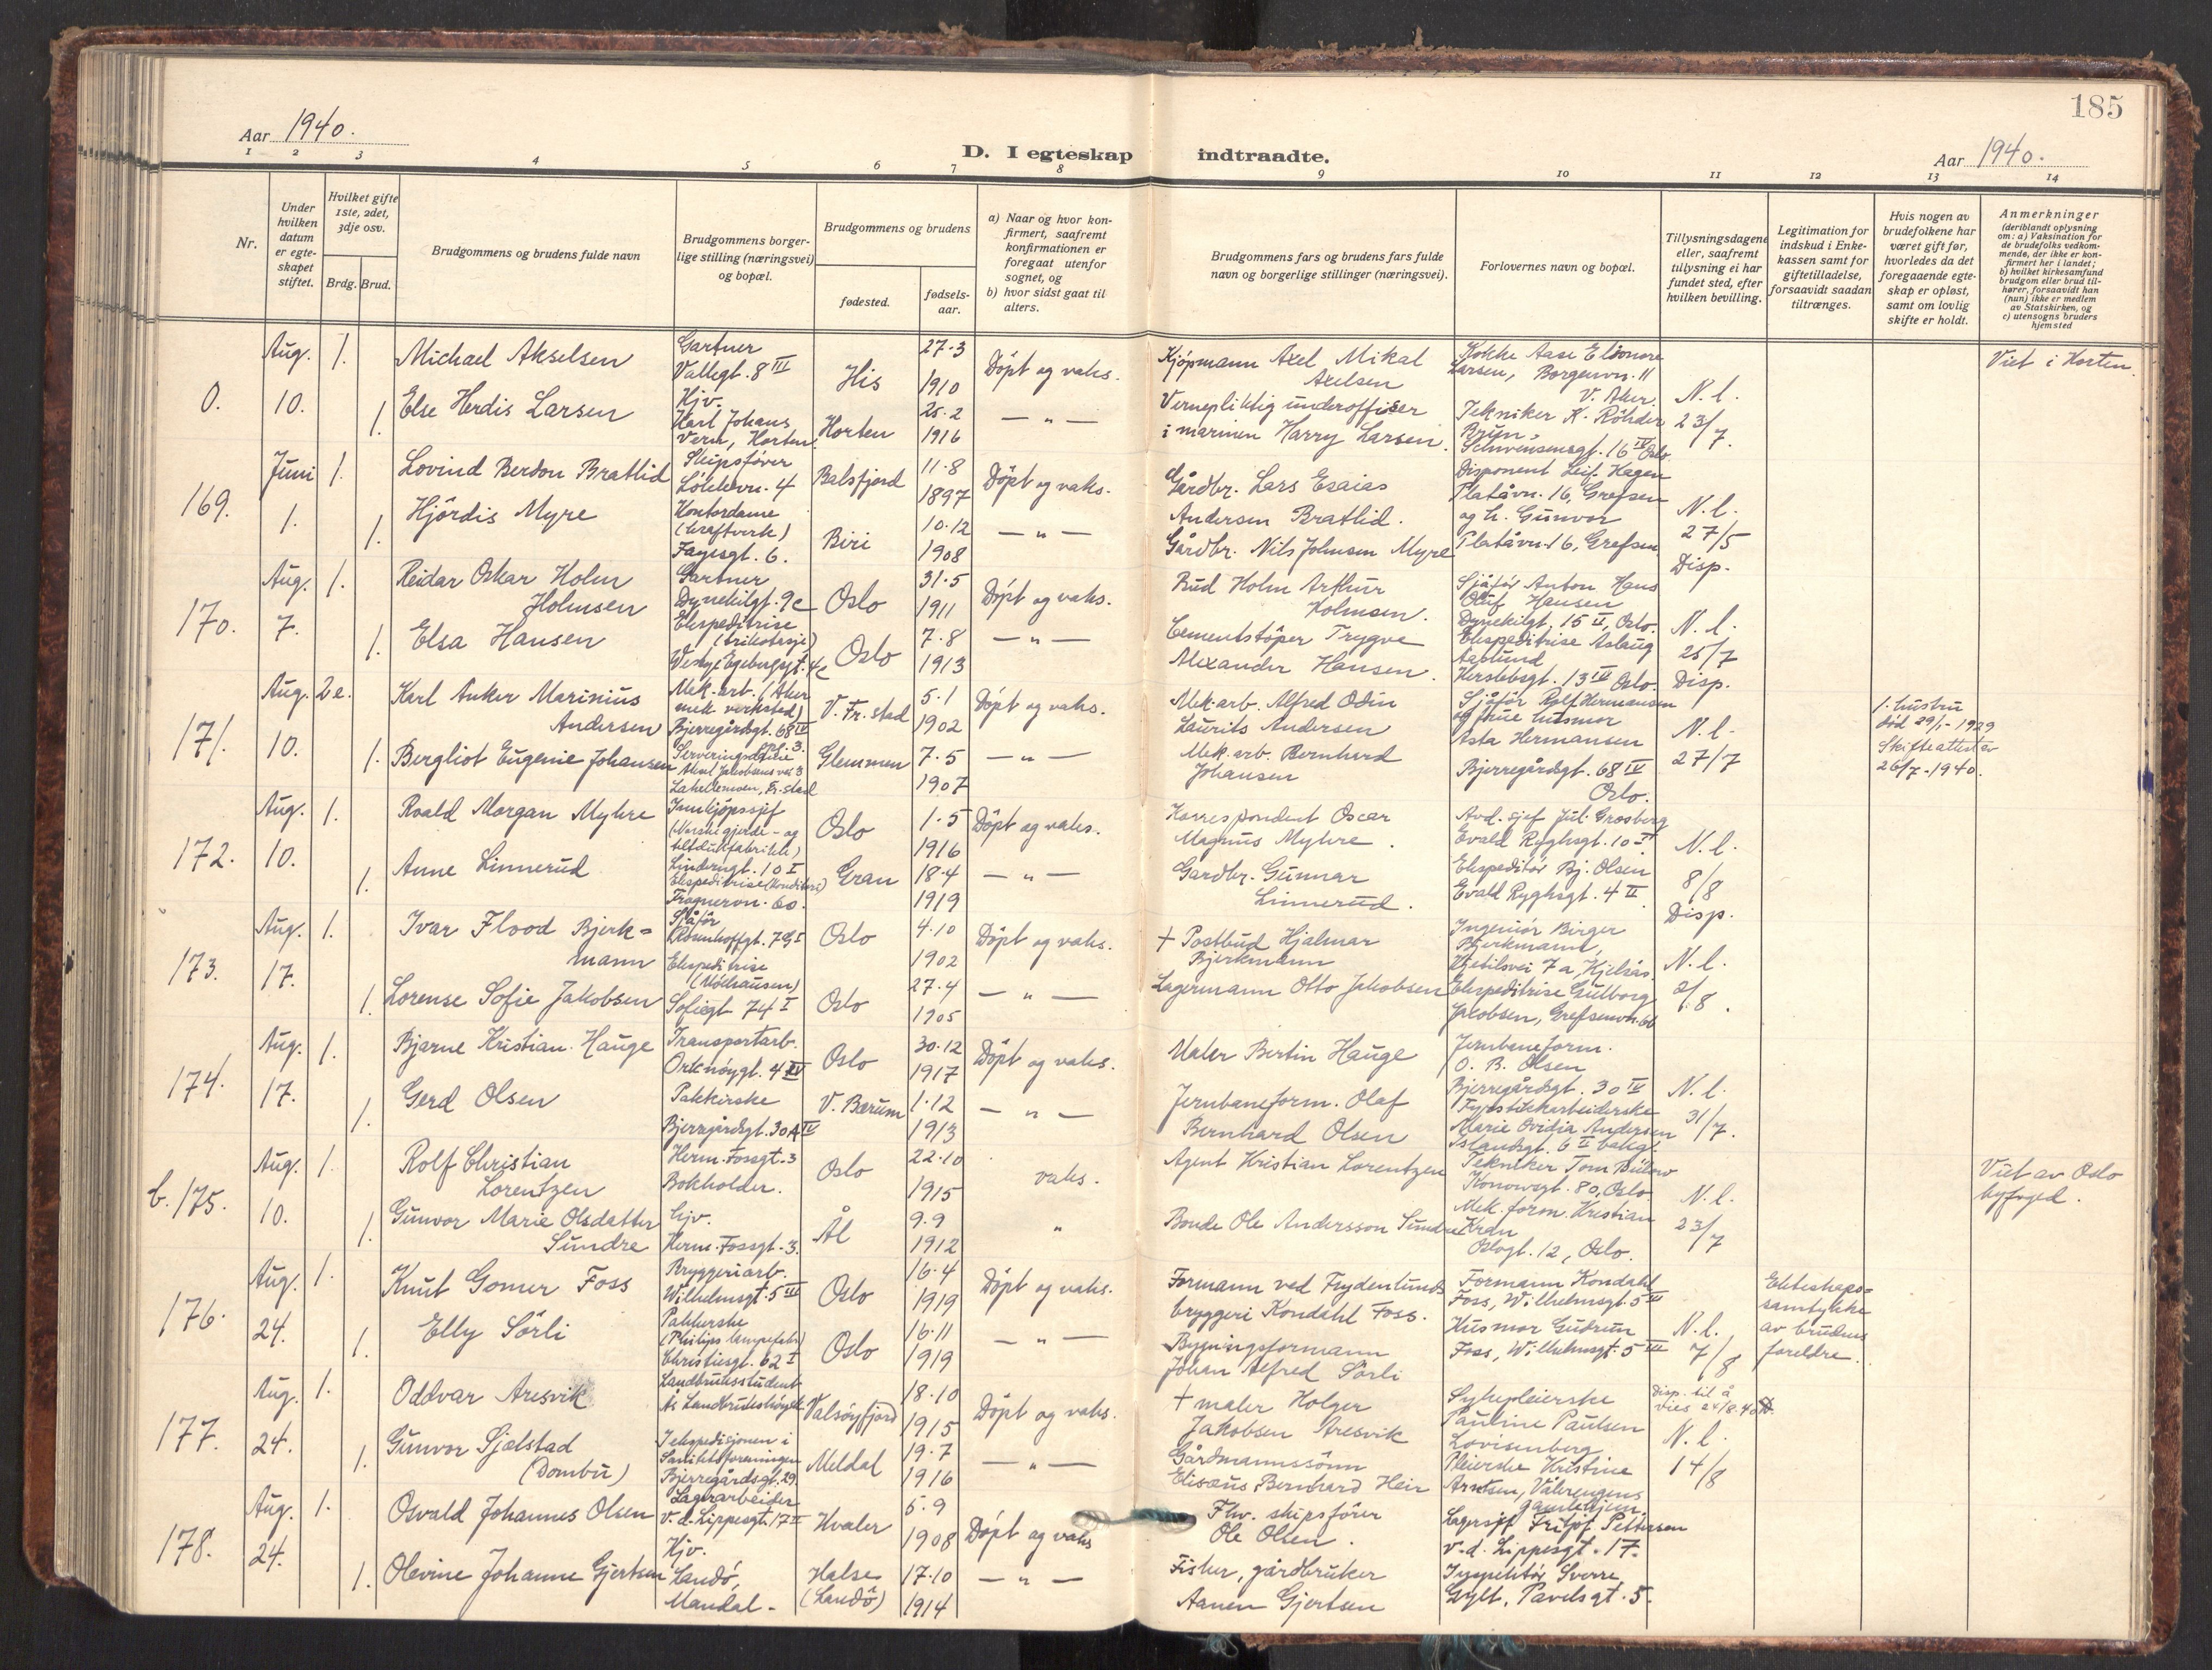 185
Aar 1940.
D. I egteskap indtraadte.
Aar 1940.
1 2 3 4 5 6 7 8 9 10 11 12 13 14
Nr.
Under hvilken datum er egteskapet stiftet.
Hvilket gifte 1ste, 2det, 3dje osv.
Brdg. Brud.
Brudgommens og brudens fulde navn
Brudgommens borgerlige stilling (næringsvei) og bopæl.
Brudgommens og brudens
fødested.
fødselsaar.
a) Naar og hvor konfirmert, saafremt konfirmationen er foregaat utenfor sognet, og
b) hvor sidst gaat til alters.
Brudgommens fars og brudens fars fulde navn og borgerlige stillinger (næringsvei).
Forlovernes navn og bopæl.
Tillysningsdagene eller, saafremt tillysning ei har fundet sted, efter hvilken bevilling.
Legitimation for indskud i Enkekassen samt for giftetilladelse, forsaavidt saadan tiltrænges.
Hvis nogen av brudefolkene har været gift før, hvorledes da det foregaaende egteskap er opløst, samt om lovlig skifte er holdt.
Anmerkninger (deriblandt oplysning om: a) Vaksination for de brudefolks vedkommende, der ikke er konfirmert her i landet; b) hvilket kirkesamfund brudgom eller brud tilhører, forsaavidt han (hun) ikke er medlem av Statskirken, og c) utensogns bruders hjemsted
0. Aug. 10.
1. Michael Akselsen
Gartner
Vallegt. 8 III
His
27-3 1910
Döpt og vaks.
Kjöpmann Axel Mikal Axelsen
Kokke Aase Eleonore Larsen, Borgenvn. 11 V. Aker.
N. l. 23/7.
Viet i Horten.
1. Else Herdis Larsen
Hjv.
Karl Johans Vern, Horten
Horten
25-2 1916
— " —
Vernepliktig underoffiser i marinen Harry Larsen.
Tekniker K. Röhder Brun, Schwensensgt. 16 IV Oslo.
169. Juni 1.
1. Lovind Berdon Bratlid
Skipsförer
Lökkevn. 4
Balsfjord
11-8 1897
Döpt og vaks.
Gårdbr. Lars Esaias Andersen Bratlid.
Disponent Leif Hagen Platåvn. 16, Grefsen
N. l. 27/5
1. Hjördis Myre
Kontordame (kraftverk)
Fagesgt. 6.
Biri
10-12 1908
— " —
Gårdbr. Nils Johnsen Myre
og h. Gunvor Platåvn. 16, Grefsen
170. Aug. 7.
1. Reidar Oskar Holm Holmsen
Gartner
Dynekilgt. 9c
Oslo
31-5 1911
Döpt og vaks.
Bud Holm Arthur Holmsen.
Sjåför Anton Hans Oluf Hansen
Dynekilgt. 15 II, Oslo.
Disp. N. l. 25/7
1. Elsa Hansen
Ekspeditrise (trikotasje)
Vestye Egebergsgt. 4c
Oslo
7-8 1913
— " —
Cementstöper Trygve Alexander Hansen.
Ekspeditrise Aslaug Aaslund
Herslebsgt. 13 III Oslo.
171. Aug. 10.
2e. Karl Anker Marinius Andersen
Mek. arb. (Aker mek. verksted)
Bjerregårdsgt. 68 IV
V. Fr.stad
5-1 1902
Döpt og vaks.
Mek. arb. Alfred Odin Laurits Andersen
Sjåför Rolf Hermansen og frue husmor Asta Hermansen
Disp. N. l. 27/7
1. hustru död 29/1-1929
Skifteattest av 26/7-1940.
1. Bergliot Eugenie Johansen
Serveringsdame
Aksel Jakobsens vei 3
Lahellemoen, Fr.stad
Glemmen
7-5 1907
— " —
Mek. arb. Bernhard Johansen
Bjerregårdsgt. 68 IV Oslo.
172. Aug. 10.
1. Roald Morgan Myhre
Innkjöpssjef
(Norske gjerde- og
Linderngt. 10 I
Oslo
1-5 1916
Döpt og vaks.
Korrespondent Oscar Magnus Myhre.
Avd. sjef Jul. Grosberg
Evald Ryghsgt. 10 II
N. l. 8/8
1. Anne Linnerud
Ekspeditrise (konditori)
Frognervn. 60.
Gran
18-4 1919
— " —
Gardbr. Gunnar Linnerud.
Ekspeditör Bj. Olsen
Evald Ryghsgt. 4 II
173. Aug. 17.
1. Ivar Flood Bjerkmann
Sjåför
Oslo
4-10 1902
Döpt og vaks.
+ Postbud Hjalmar Bjerkmann
Ingeniör Birger Bjerkmann,
Kjetilsvei 7a, Kjelsås
Disp. N. l. 2/8.
1. Lorense Sofie Jakobsen
Ekspeditrise
Sofiegt 74 I
Oslo
27-4 1905
— " —
Lagermann Otto Jakobsen
Ekspeditrise Gulborg Jacobsen, Grefsenvn. 66
174. Aug. 17.
1. Bjarne Kristian Hauge
Transportarb.
Orknöygt. 4 IV
Oslo
30-12 1917
Döpt og vaks.
Maler Bertin Hauge
Jernbaneform. O. B. Olsen
Bjerregårdsgt. 30 IV
N. l. 31/7.
1. Gerd Olsen
Pakkerske
Bjerregårdsgt. 30A IV
V. Bærum
1-12 1913
— " —
Jernbaneform. Olaf Bernhard Olsen
Marie Ovidia Andersen
Islandsgt. 6 II bakg.
b. 175. Aug. 10.
1. Rolf Christian Lorentzen
Herm. Fossgt. 3
Bokholder.
Oslo
22-10 1915
vaks.
Agent Kristian Lorentzen
Tekniker Tom Bülow
Konowsgt. 80, Oslo
N. l. 23/7
Viet av Oslo byfoged.
1. Gunvor Marie Olsdatter Sundre
Hjv.
Herm. Fossgt. 3.
Ål
9-9 1912
"
Bonde Ole Andersson Sundre
Mek. form. Kristian Kran
Oslogt. 12, Oslo.
176. Aug. 24.
1. Knut Gomer Foss
Bryggeriarb.
Wilhelmsgt. 5 III
Oslo
16-4 1919
Döpt og vaks.
Formann ved Frydenlunds bryggeri Kondahl Foss.
Formann Kondahl Foss, Wilhelmsgt. 5 III
N. l. 7/8
Ekteskapssamtykke av brudens foreldre.
1. Elly Sörli
Pakkerske
(Philips lampefabr.)
Christiesgt. 62 I
Oslo
16-11 1919
— " —
Bygningsformann Johan Alfred Sörli
Husmor Gudrun Foss, Wilhelmsgt. 5 III
177. Aug. 24.
1. Oddvar Aresvik
Landbruksstudent
Ås Landbrukshögsk.
Valsöyfjord
18-10 1915
Döpt og vaks.
+ maler Holger Jakobsen Aresvik
Sykepleierske Pauline Paulsen Lovisenberg
Disp. til å vies 24/8.40
N. l. 14/8
1. Gunvor Sjølstad (Dombu)
I ekspedisjonen i Sanitetsforeningen
Bjerregårdsgt. 29
Meldal
19-7 1916
— " —
Gårdmannssönn Elisæus Bernhard Heir
Pleierske Kristine Arntsen, Vålerengens gamlehjem.
178. Aug. 24.
1. Osvald Johannes Olsen
Lagerarbeider
v. d. Lippesgt. 17 II
Hvaler
5-9 1908
Döpt og vaks
Fhv. skipsförer Ole Olsen.
Lagersjef Fritjof Pettersen
v. d. Lippesgt. 17.
1. Olevine Johanne Gjertsen
Hjv.
Landö, Mandal -
Halse (Landö)
17-10 1914
— " —
Fisker, gårdbruker Aanen Gjertsen
Inspektör Sverre Gylt, Pavelsgt. 5.